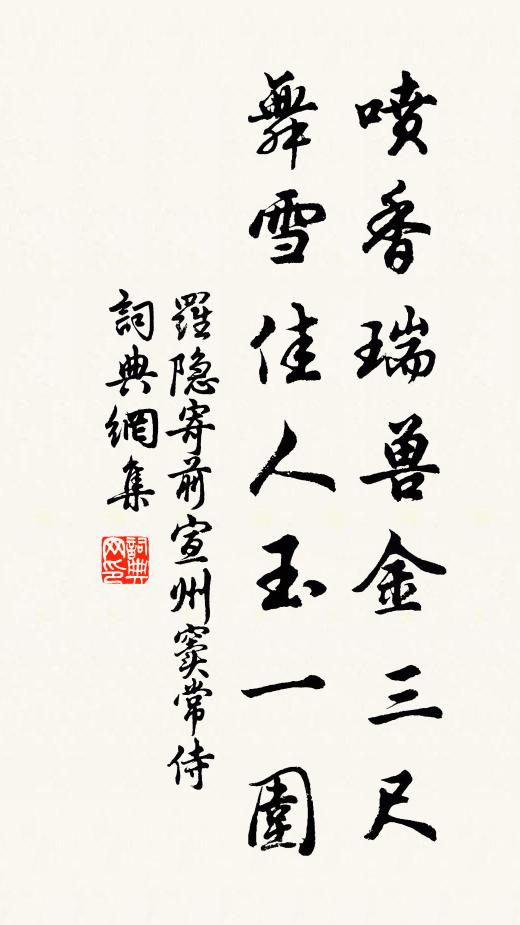 喷香瑞兽金三尺
舞雪佳人玉一圍
羅隐寄前宣州窦常侍
詞典網集
詞典網印